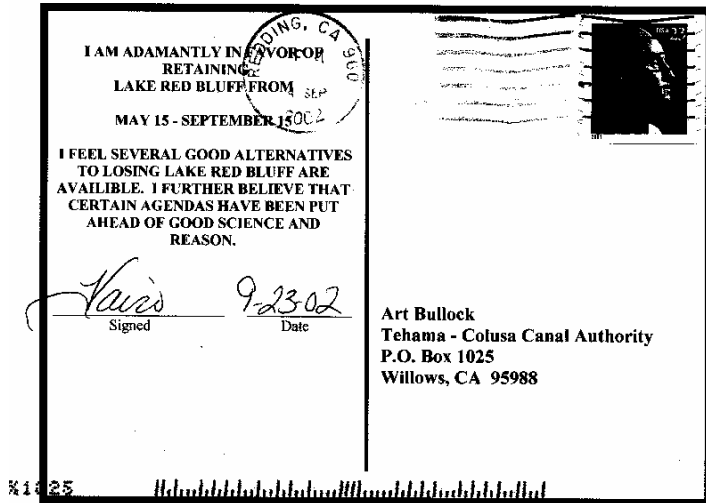 I AM ADAMANTLY IN FAVOR OF
RETAINING
LAKE RED BLUFF FROM
MAY 15 - SEPTEMBER 15
I FEEL SEVERAL GOOD ALTERNATIVES
TO LOSING LAKE RED BLUFF ARE
AVAILIBLE. I FURTHER BELIEVE THAT
CERTAIN AGENDAS HAVE BEEN PUT
AHEAD OF GOOD SCIENCE AND
REASON.
9-23-02
Signed Date
REDDING, CA 960
SEP
2002
Art Bullock
Tehama - Colusa Canal Authority
P.O. Box 1025
Willows, CA 95988